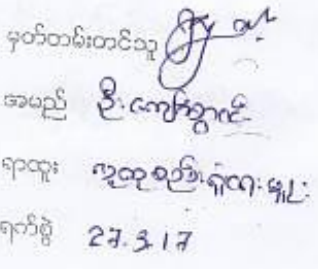 မှတ်တမ်းတင်သူ
အမည် ဦးကျော်
ရာထူး လူထုစည်းရုံးရေးမှူး
ရက်စွဲ 27.3.17